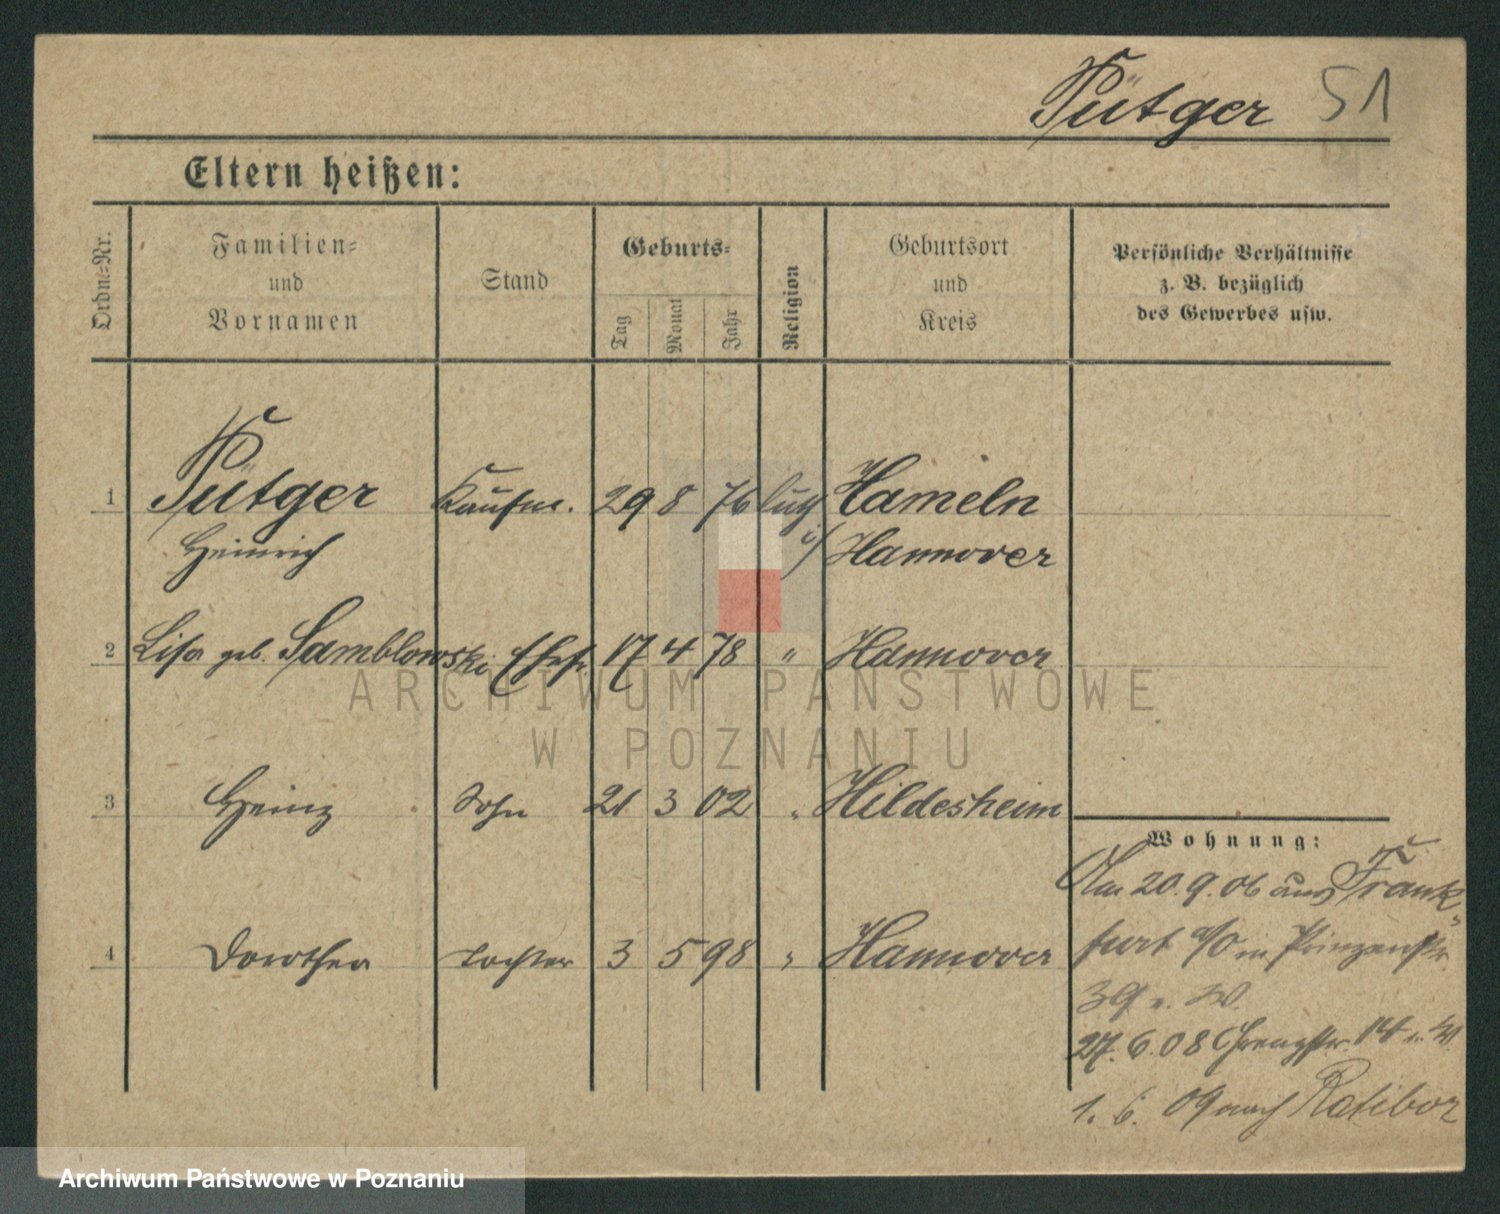 Pütger 51
Eltern heißen:
Ordn.-Nr.
Familien-
und
Vornamen
Stand
Geburts-
Tag
Monat
Jahr
Religion
Geburtsort
und
Kreis
Persönliche Verhältnisse
z. B. bezüglich
des Gewerbes usw.
1 Pütger Kaufm. 29 8 76 luth Hameln
Heinrich i/ Hannover
2 Lisa geb. Samblowski Ehefr. 17 4 78 " Hannover
ARCHIWUM PAŃSTWOWE
W POZNANIU
3 Heinz Sohn 21 3 02 " Hildesheim
Wohnung:
Am 20.9.06 aus Frank-
4 Dorothea Tochter 3 5 98 " Hannover
furt a/O in Prinzenstr.
39 n. W.
27.6.08 14 n. W.
1.6.09 nach Ratibor
Archiwum Państwowe w Poznaniu